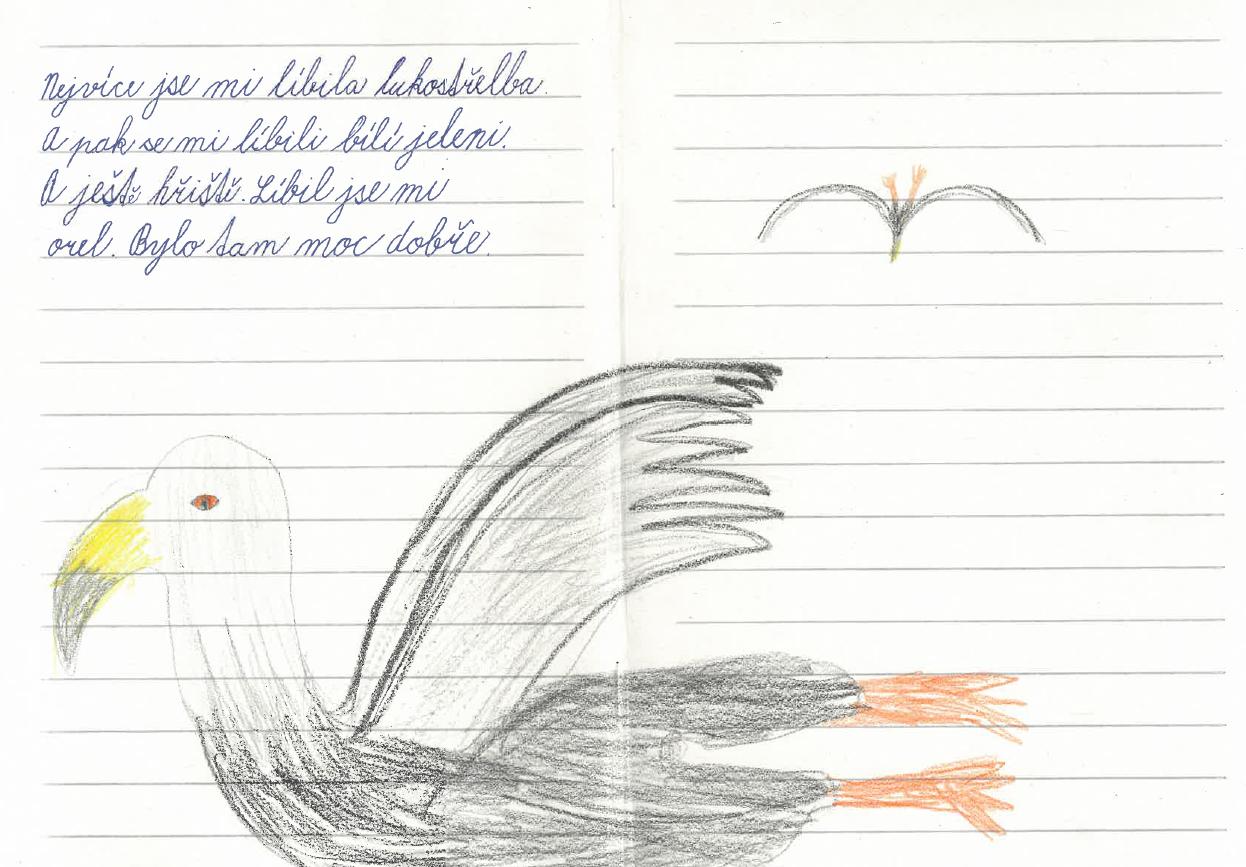 Nejvíce jse mi líbila lukostřelba.
A pak se mi líbili bílí jeleni.
A ještě hřiště. Líbil jse mi
orel. Bylo tam moc dobře.